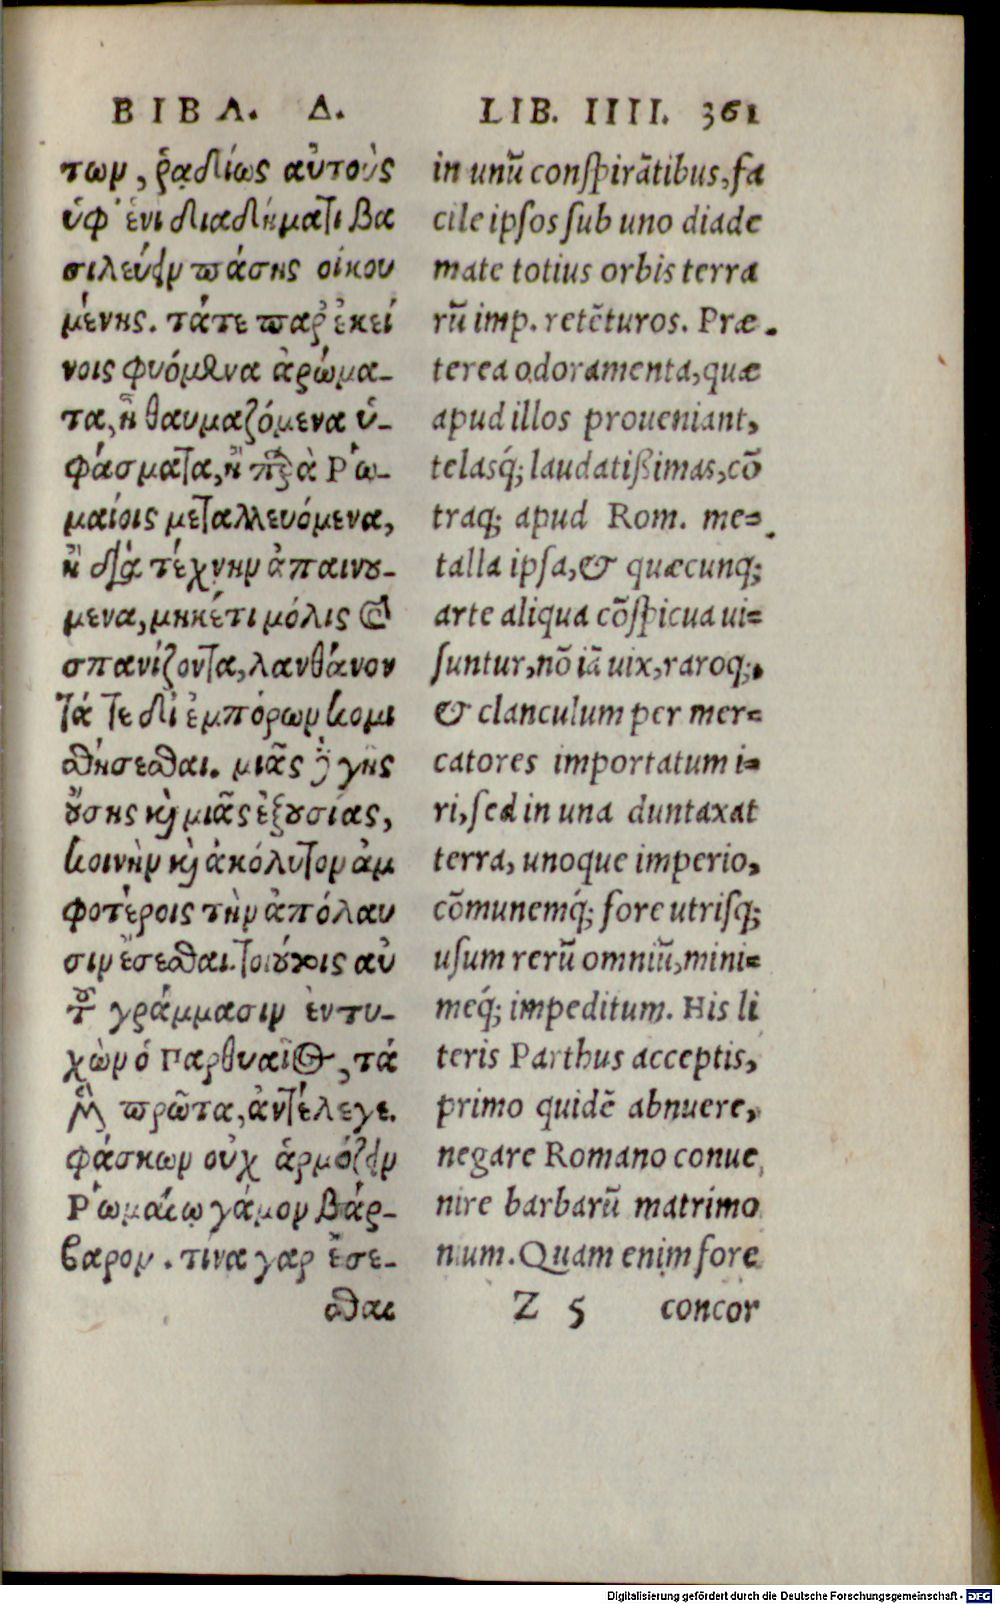 ΒΙΒΛ. Δ.
των, ῥαδίως αὐτοὺς
ὑφ' ἑνὶ διαδήματι βα
σιλεύειν πάσης οἰκου
μένης. τάτε παρ' ἐκεί
νοις φυόμενα ἀρώμα-
τα, ἢ θαυμαζόμενα ὑ-
φάσματα, ἢ παρὰ Ῥω-
μαίοις μεταλλευόμενα,
ἢ διὰ τέχνην ἐπαινου-
μενα, μηκέτι μόλις καὶ
σπανίζοντα, λανθάνον
τά τε δι' ἐμπόρων κομι
σθήσεσθαι. μιᾶς δὲ γῆς
οὔσης καὶ μιᾶς ἐξουσίας,
κοινὴν καὶ ἀκόλυτον ἀμ
φοτέροις τὴν ἀπόλαυ
σιν ἔσεσθαι. τοιούτοις αὐ
τοῦ γράμμασιν ἐντυ-
χὼν ὁ Παρθυαῖος, τὰ
μὲν πρῶτα, ἀντέλεγε.
φάσκων οὐχ ἁρμόζειν
Ῥωμαίῳ γάμον βάρ-
βαρον. τίνα γαρ ἔσε-
σθαι
LIB. IIII. 361
in unũ conspirãtibus, fa
cile ipsos sub uno diade
mate totius orbis terra
rũ imp. retẽturos. Præ
terea odoramenta, quæ
apud illos proueniant,
telasq́; laudatißimas, cõ
traq; apud Rom. me=
talla ipsa, & quæcunq;
arte aliqua cõspicua ui=
suntur, nõ iã uix, raroq;,
& clanculum per mer=
catores importatum i=
ri, sed in una duntaxat
terra, unoque imperio,
cõmunemq́; fore utrisq;
usum rerũ omniũ, mini=
meq́; impeditum. His li
teris Parthus acceptis,
primo quidẽ abnuere,
negare Romano conue
nire barbarũ matrimo
nium. Quam enim fore
Z 5 concor
Digitalisierung gefördert durch die Deutsche Forschungsgemeinschaft - DFG